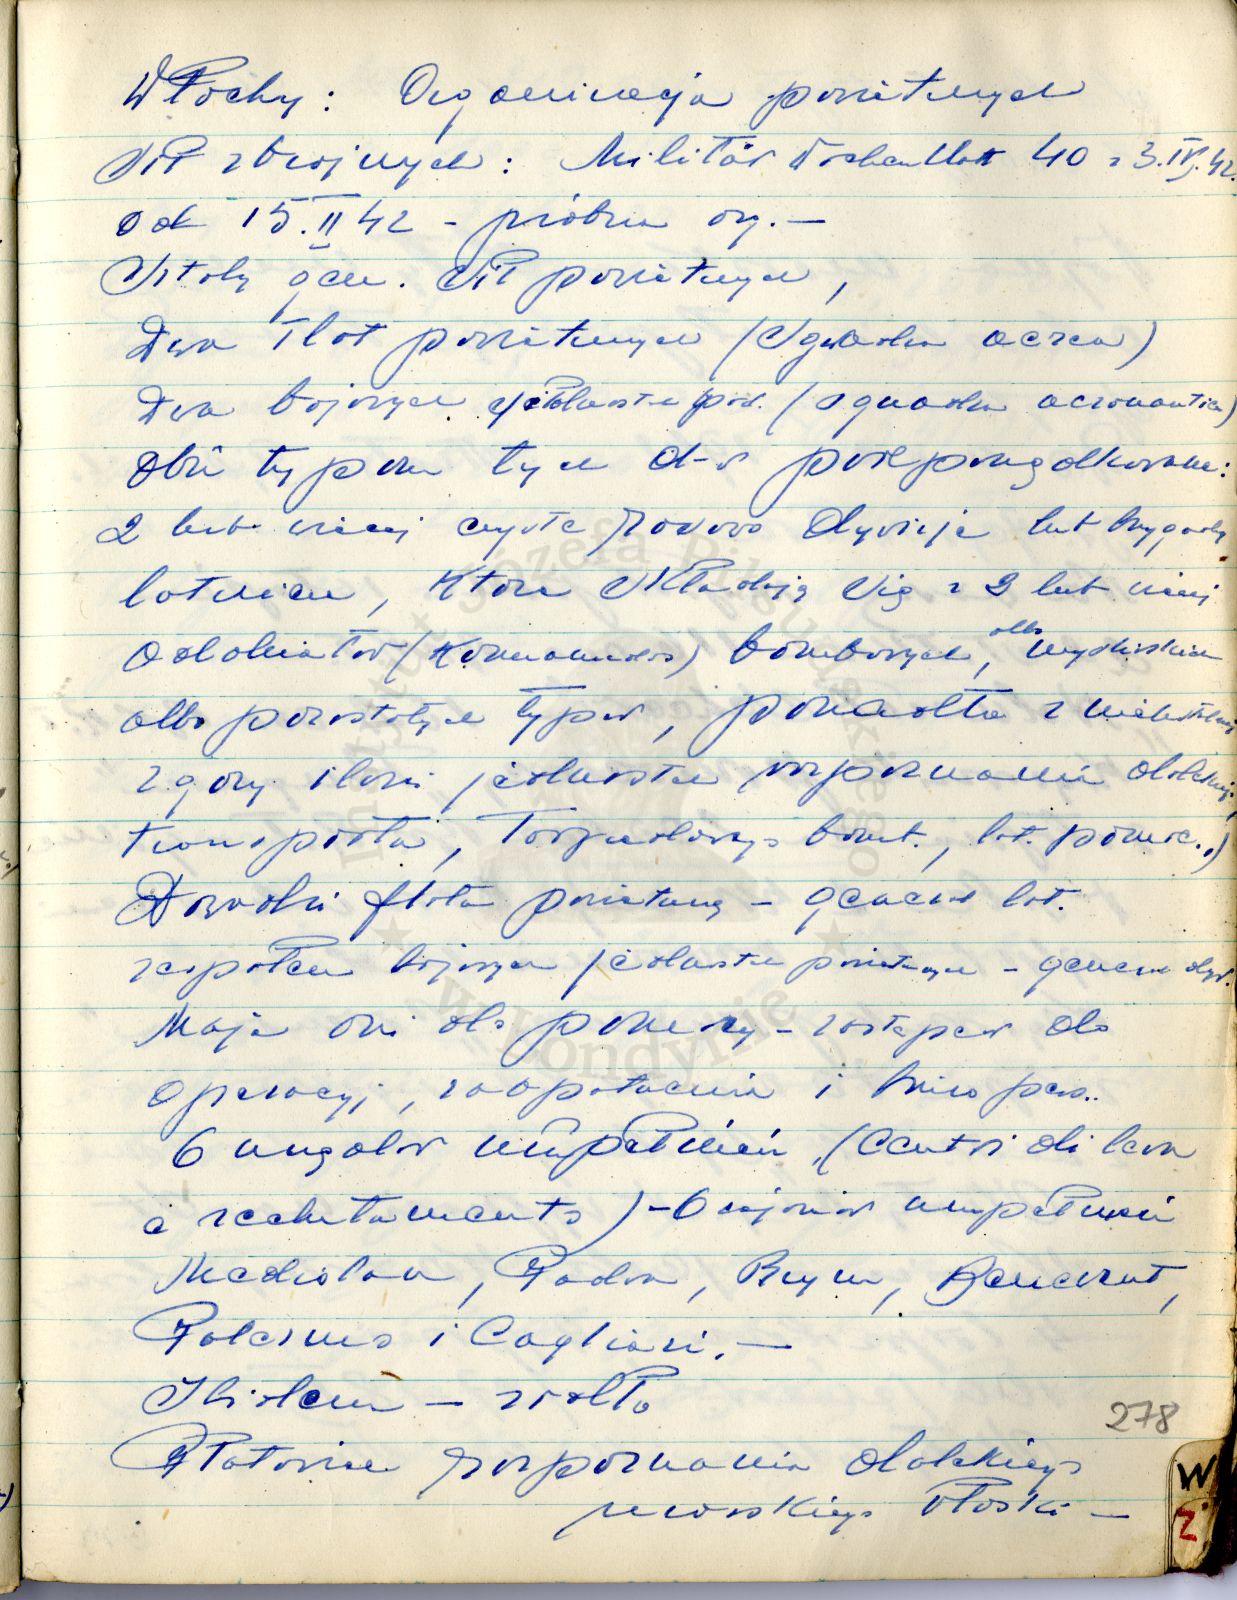 Włochy: Organizacja powietrznych
sił zbrojnych: Militär Wochenblatt 40 z 3.IV.42.
od 15.II 42 - próbna org. —
Sztaby gen. sił powietrznych,
Dwa flot powietrznych (Sqadra aerea)
Dwa bojowych jednostek pow. (squadra aeronautica)
Obu typom tych d-w podporządkowane:
2 lub więcej czyste dywizje lub brygady
lotnicze, które składają się z 2 lub więcej
oddziałów (Kommandos) bombowych, albo myśliwskich
albo pozostałych typów, ponadto z
z góry ilości jednostek rozpoznania dalekiego,
transportu, torpedowego bomb., lot. pomoc..)
Dowódcy flota powietrzną - generał lot.
zespołem bojowych jednostek powietrznych - generał dyw.
Mają oni do pomocy - zastępców do
operacyj, zaopatrzenia i biura pers..
6 urzędów uzupełnień (Centri di leva
e reclutamento) - 6 rejonów uzupełnień
Mediolan, Padwa, Rzym, Benewent,
Palermo i Cagliari. —
źródło
Płatowiec rozpoznania dalekiego
morskiego włoski —
278
W
Z
Instytut Józefa Piłsudskiego
w Londynie